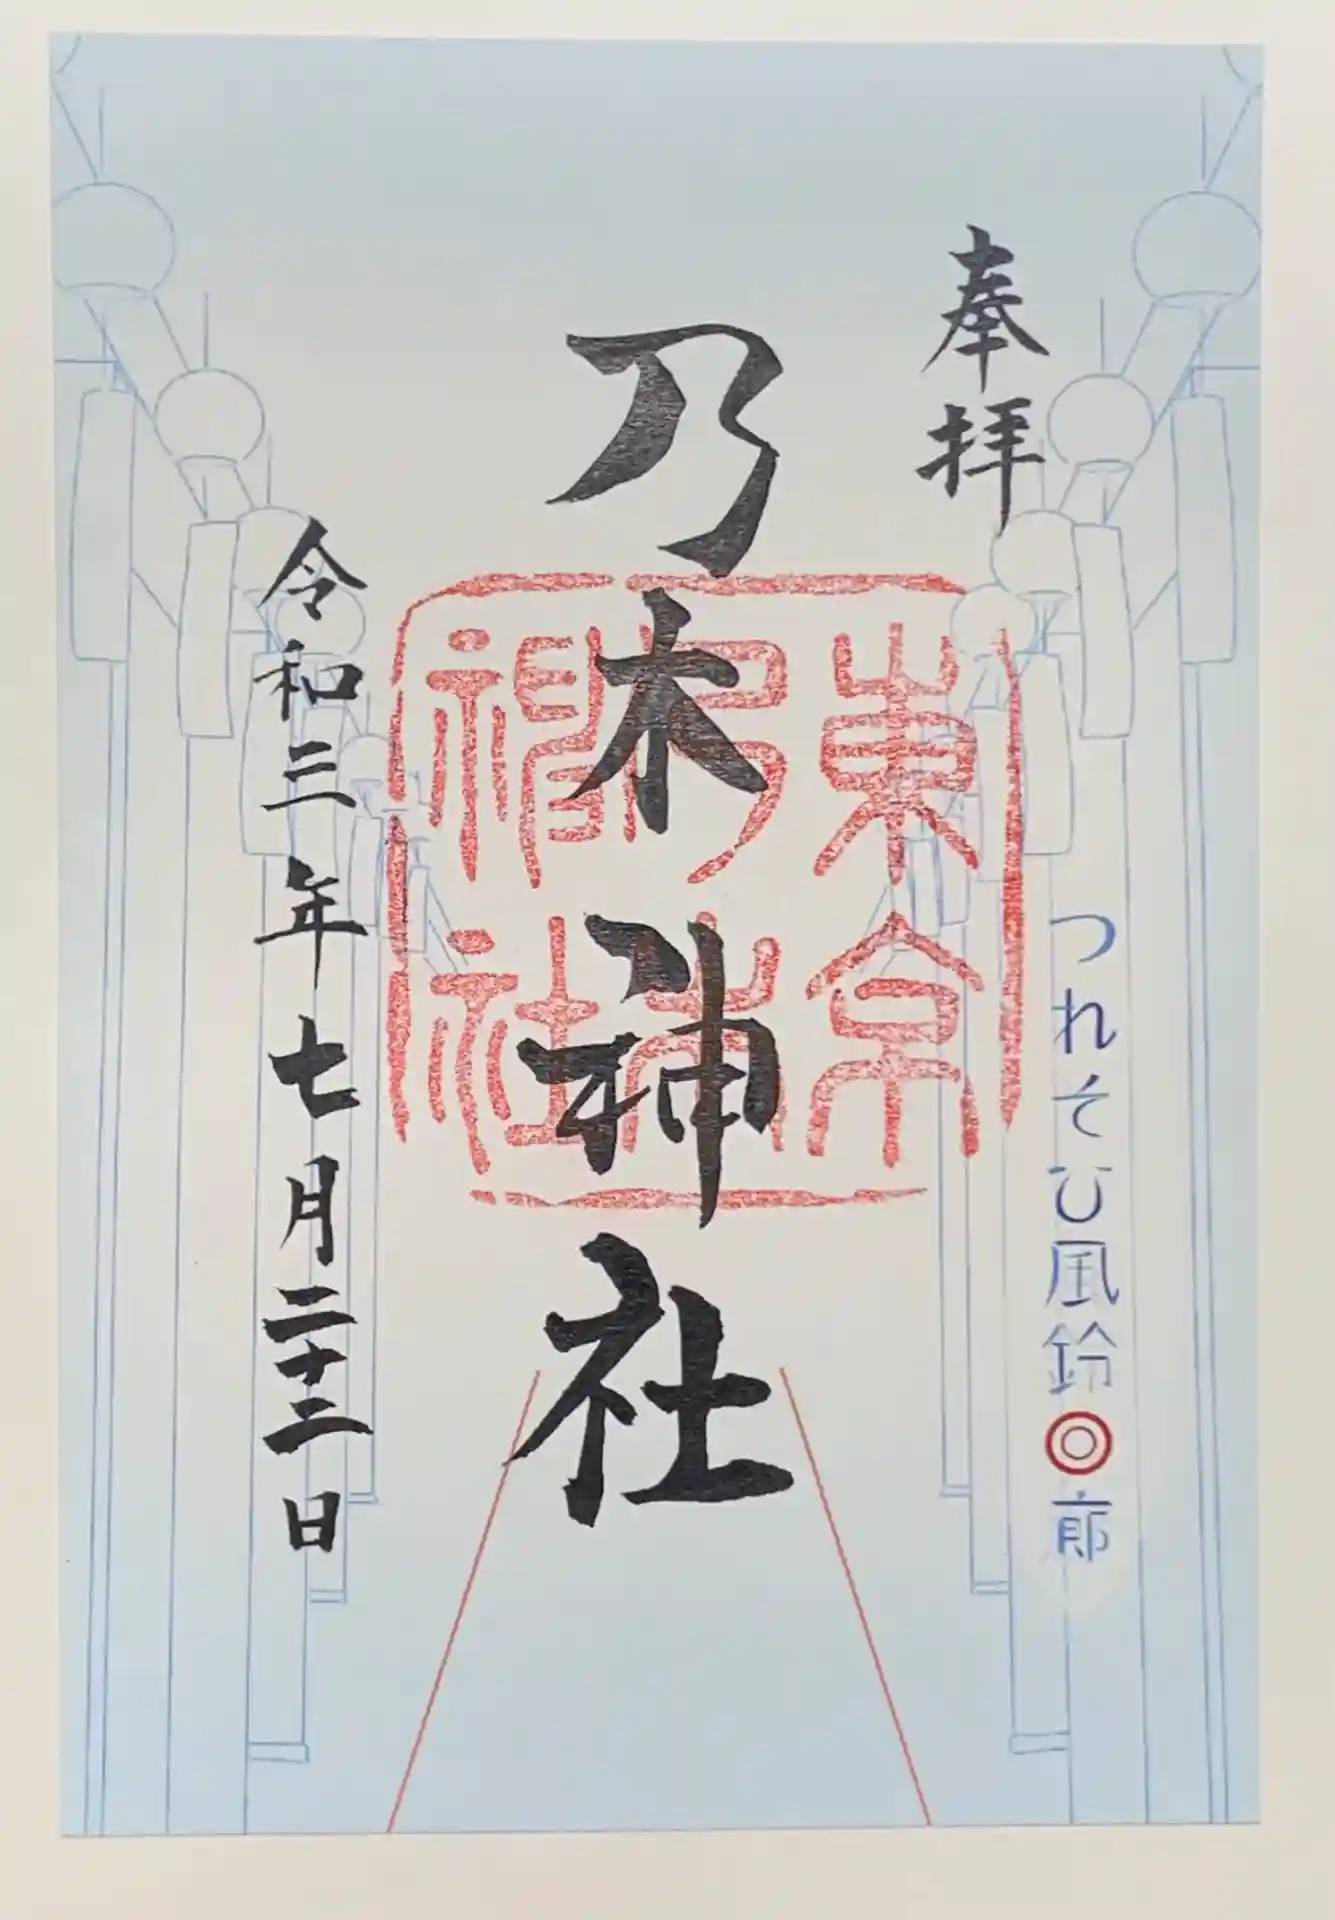 奉拝
つれそひ風鈴回廊
乃木神社
東京
乃木
神社
令和三年七月二十三日